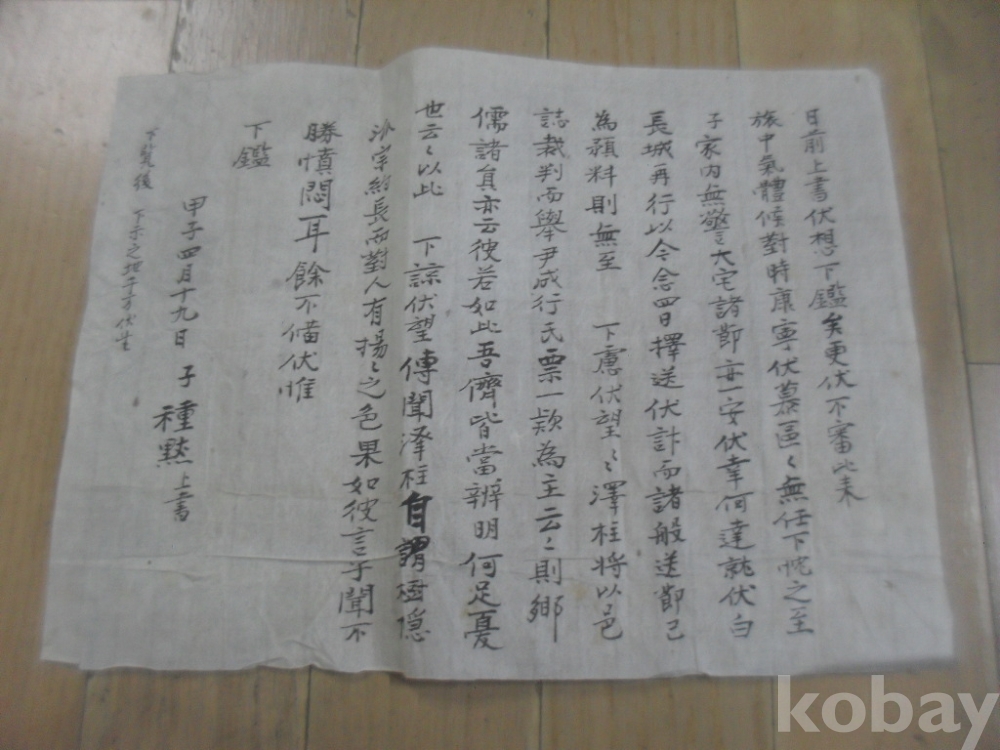 日前上書伏想下鑑矣更伏不審此未
旅中氣體候對時康寧伏慕區〻無任下忱之至
子家内無警大宅諸節亦一安伏幸何達就伏白
長城再行以今念四日擇送伏計而諸般送節已
為預料則無至 下慮伏望〻澤柱將以邑
誌裁判而擧尹成行氏票一款為主云〻則鄉
儒諸員亦云彼若如此吾儕皆當辨明何足憂
也云〻以此 下諒伏望傳聞澤柱自謂樹隱
約長而對人有揚〻之色果如彼言子聞不
勝憤悶耳餘不備伏惟
下鑑
甲子四月十九日 子 種默 上書
下覽後 下示之地千万伏望
kobay